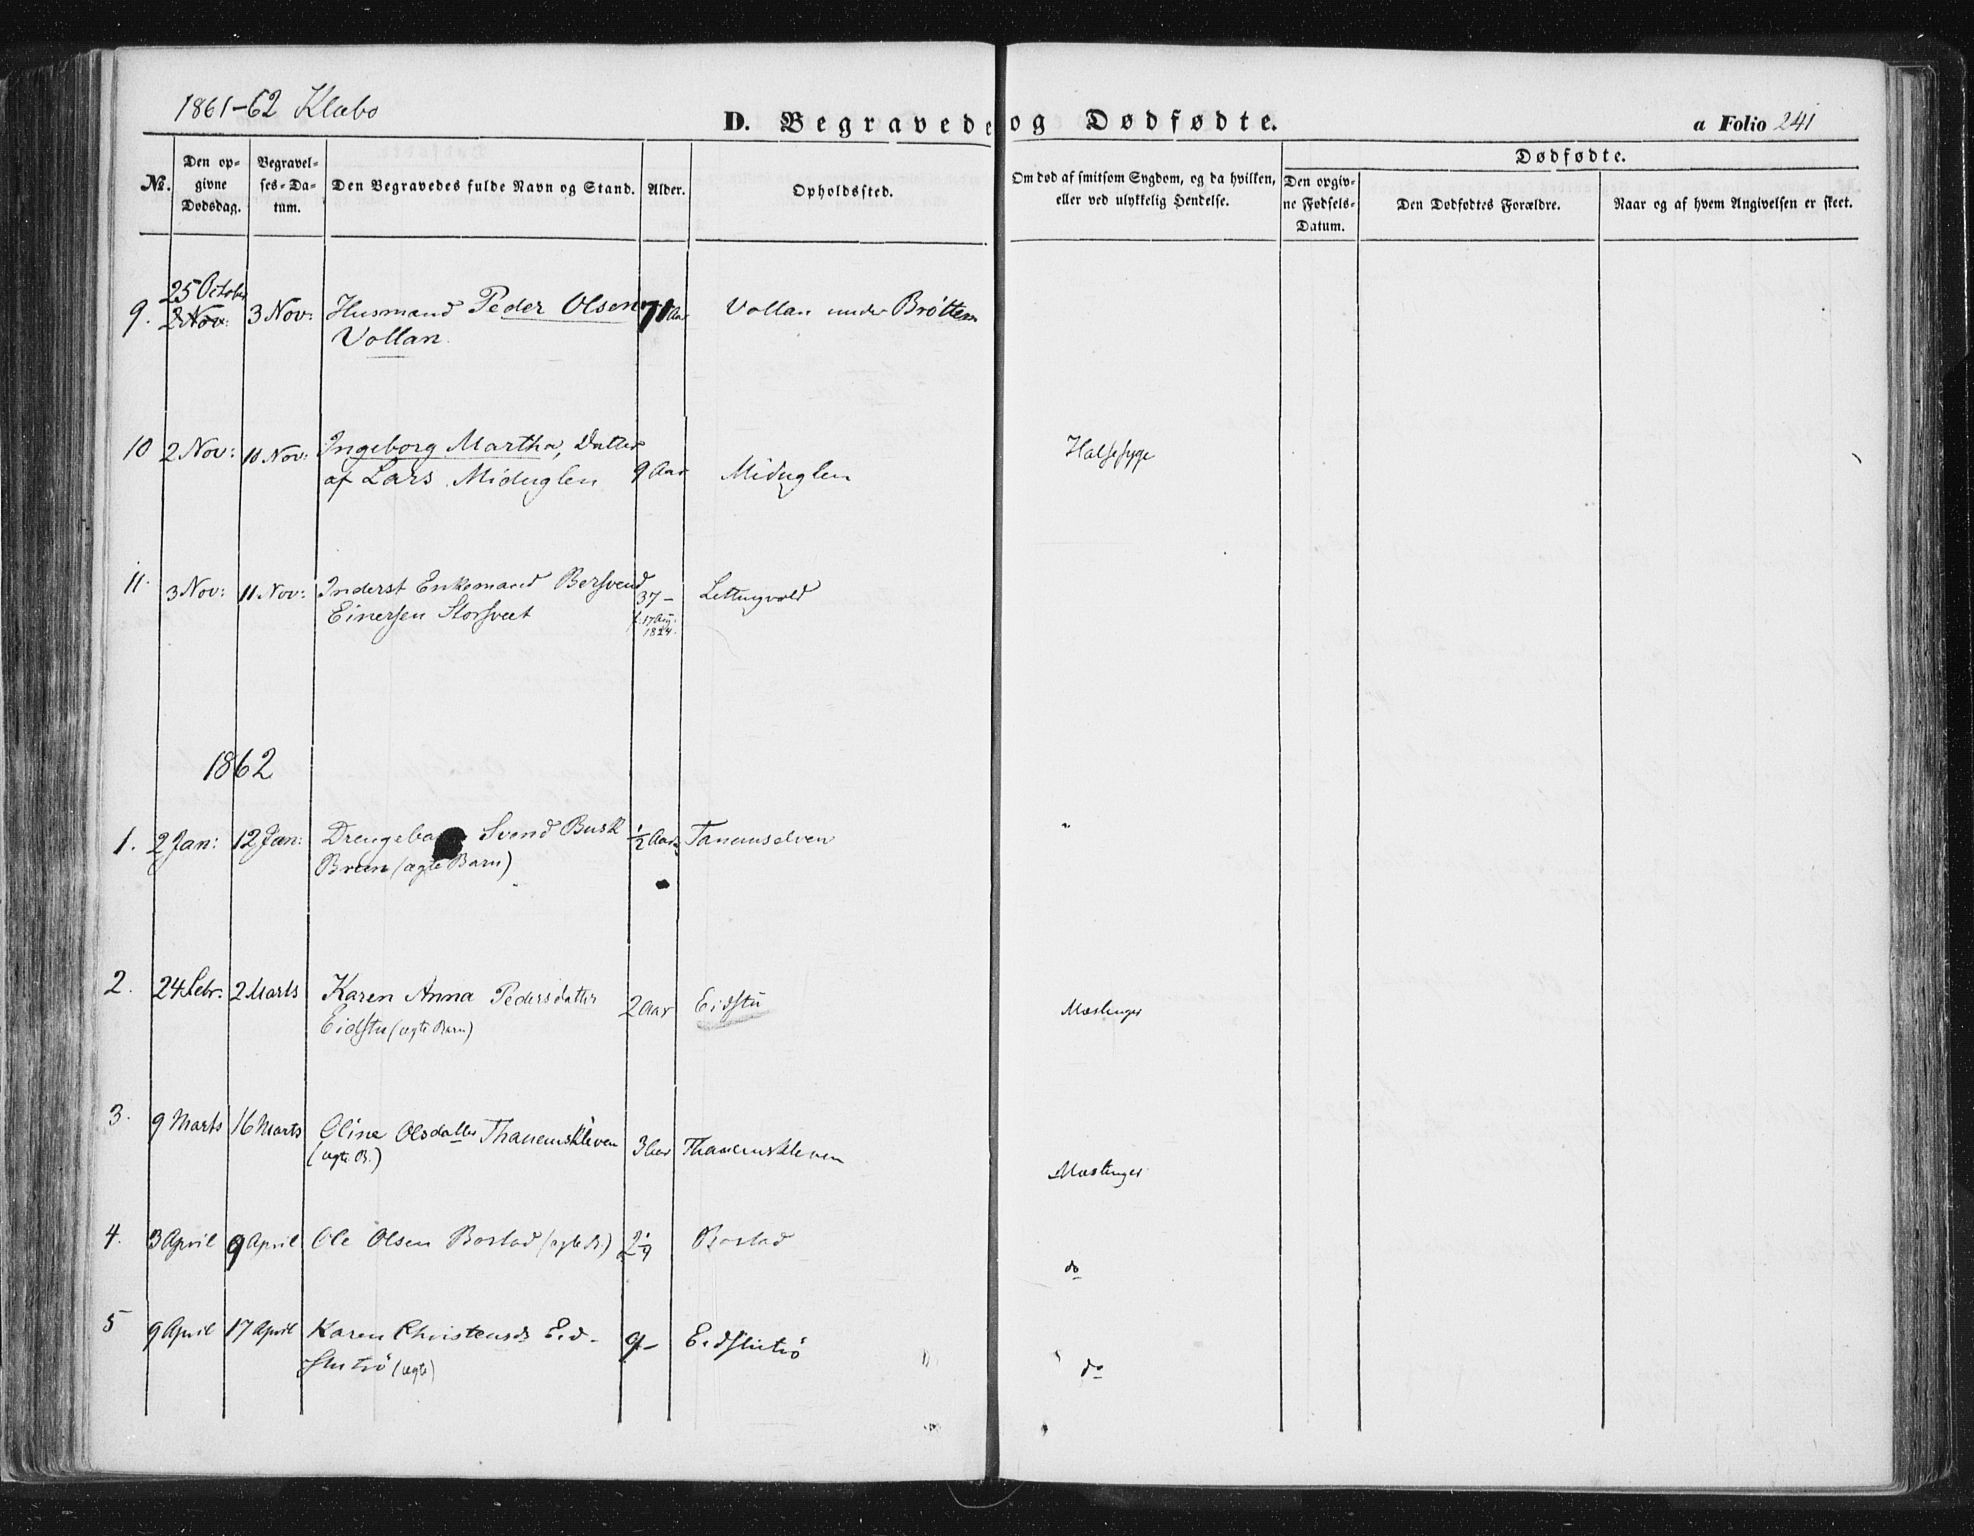 1861-62 Klæbo
D. Begravede og Dødfødte.
a Folio 241
Dødfødte.
№.
Den op-
givne
Dødsdag.
Begravel-
ses-Da-
tum.
Den Begravedes fulde Navn og Stand.
Alder.
Opholdssted.
Om død af smitsom Sygdom, og da hvilken,
eller ved ulykkelig Hendelse.
Den opgiv-
ne Fødsels-
Datum.
Den Dødfødtes Forældre.
Naar og af hvem Angivelsen er skeet.
25 October
9. 2 Nov: 3 Nov: Husmand Peder Olsen 71 Aar Vollan under Brøttem
Vollan.
10 2 Nov: 10 Nov: Ingeborg Martha, Datter Halssyge
af Lars Miduglen 9 Aar Miduglen
11. 3 Nov: 11 Nov: Inderst Enkemand Bersvend 37- Lettingvold
Einersen Storsveet f. 17 Aug.
1824.
1862
1. 2 Jan: 12 Jan: Drengeba Svend Busk 1/2 Aar Tanemselven "
Bruun (ægte Barn)
2. 24 Febr. 2 Marts Karen Anna Pedersdatter 2 Aar Eidstu Mæslinger
Eidstu (ægte Barn)
3. 9 Marts 16 Marts Oline Olsdatter Thanemskleven 3 Aar Thanemskleven
(ægte B.) Mæslinger
4. 3 April 9 April Ole Olsen Bostad (ægte B.) Bostad do
5 9 April 17 April Karen Christensd: Eid- 9- Eidstutrø do
stutrø (ægte)